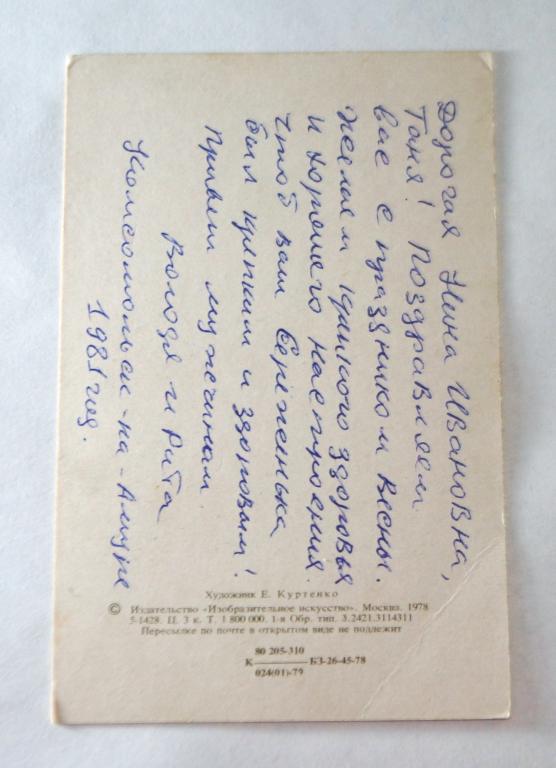 Дорогия Нина Ивановна,
Таня! Поздравляем
вас с праздником Весны.
Желаем крепкого здоровья
и хорошего настроения.
Чтоб ваш Сереженька
был крепким и здоровым!
Привет мужчинам
Володя и Рита
Комсомольск-на-Амуре
1981 год.
Художник Е. Куртенко
© Издательство «Изобразительное искусство». Москва. 1978
5-1428. Ц. 3 к. Т. 1 800 000. 1-я Обр. тип. 3.2421.3114311
Пересылке по почте в открытом виде не подлежит
80 205-310
К ——— БЗ-26-45-78
024(01)-79